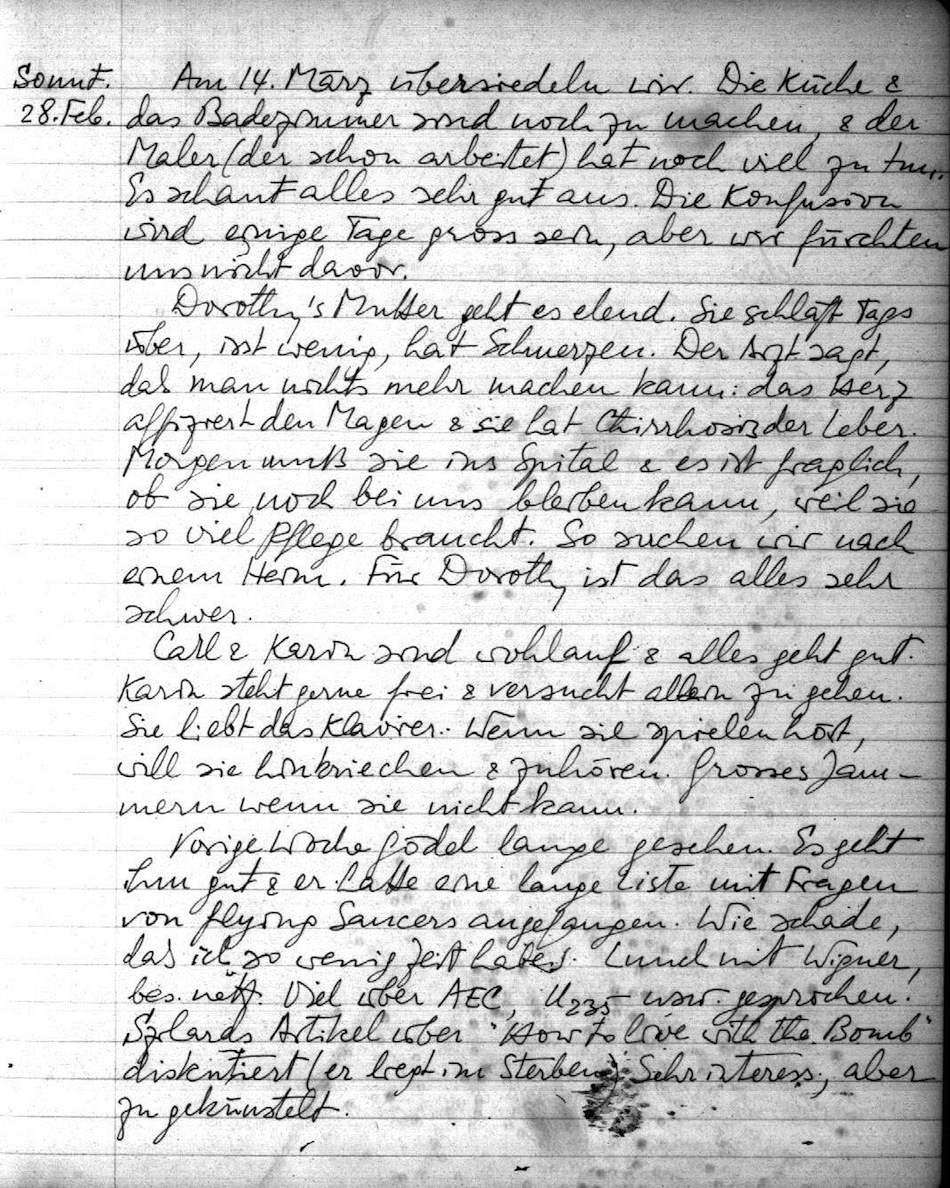 Sonnt. Am 14. März übersiedeln wir. Die Küche &
28. Feb. das Badezimmer sind noch zu machen, & der
Maler (der schon arbeitet) hat noch viel zu tun.
Es schaut alles sehr gut aus. Die Konfusion
wird einige Tage gross sein, aber wir fürchten
uns nicht davor.
Dorothy's Mutter geht es elend. Sie schläft Tags
über, isst wenig, hat Schmerzen. Der Arzt sagt,
das man nichts mehr machen kann: das Herz
affiziert den Magen & sie hat Chirrhosis der Leber.
Morgen muß sie ins Spital & es ist fraglich,
ob sie noch bei uns bleiben kann, weil sie
so viel Pflege braucht. So suchen wir nach
einem Heim. Für Dorothy ist das alles sehr
schwer.
Carl & Karin sind wohlauf & alles geht gut.
Karin steht gerne frei & versucht allein zu gehen.
Sie liebt das Klavier. Wenn sie spielen hört,
will sie hinkriechen & zuhören. Grosses Jam-
mern wenn sie nicht kann.
Vorige Woche Gödel lange gesehen. Es geht
ihm gut & er hatte eine lange Liste mit Fragen
von flying Saucers angefangen. Wie schade,
das ich so wenig Zeit habe. Lunch mit Wigner,
bes. nett. Viel über AEC, U235 usw. gesprochen.
Szilards Artikel über "How to live with the Bomb"
diskutiert (er liegt im Sterben). Sehr interess., aber
zu gekünstelt.